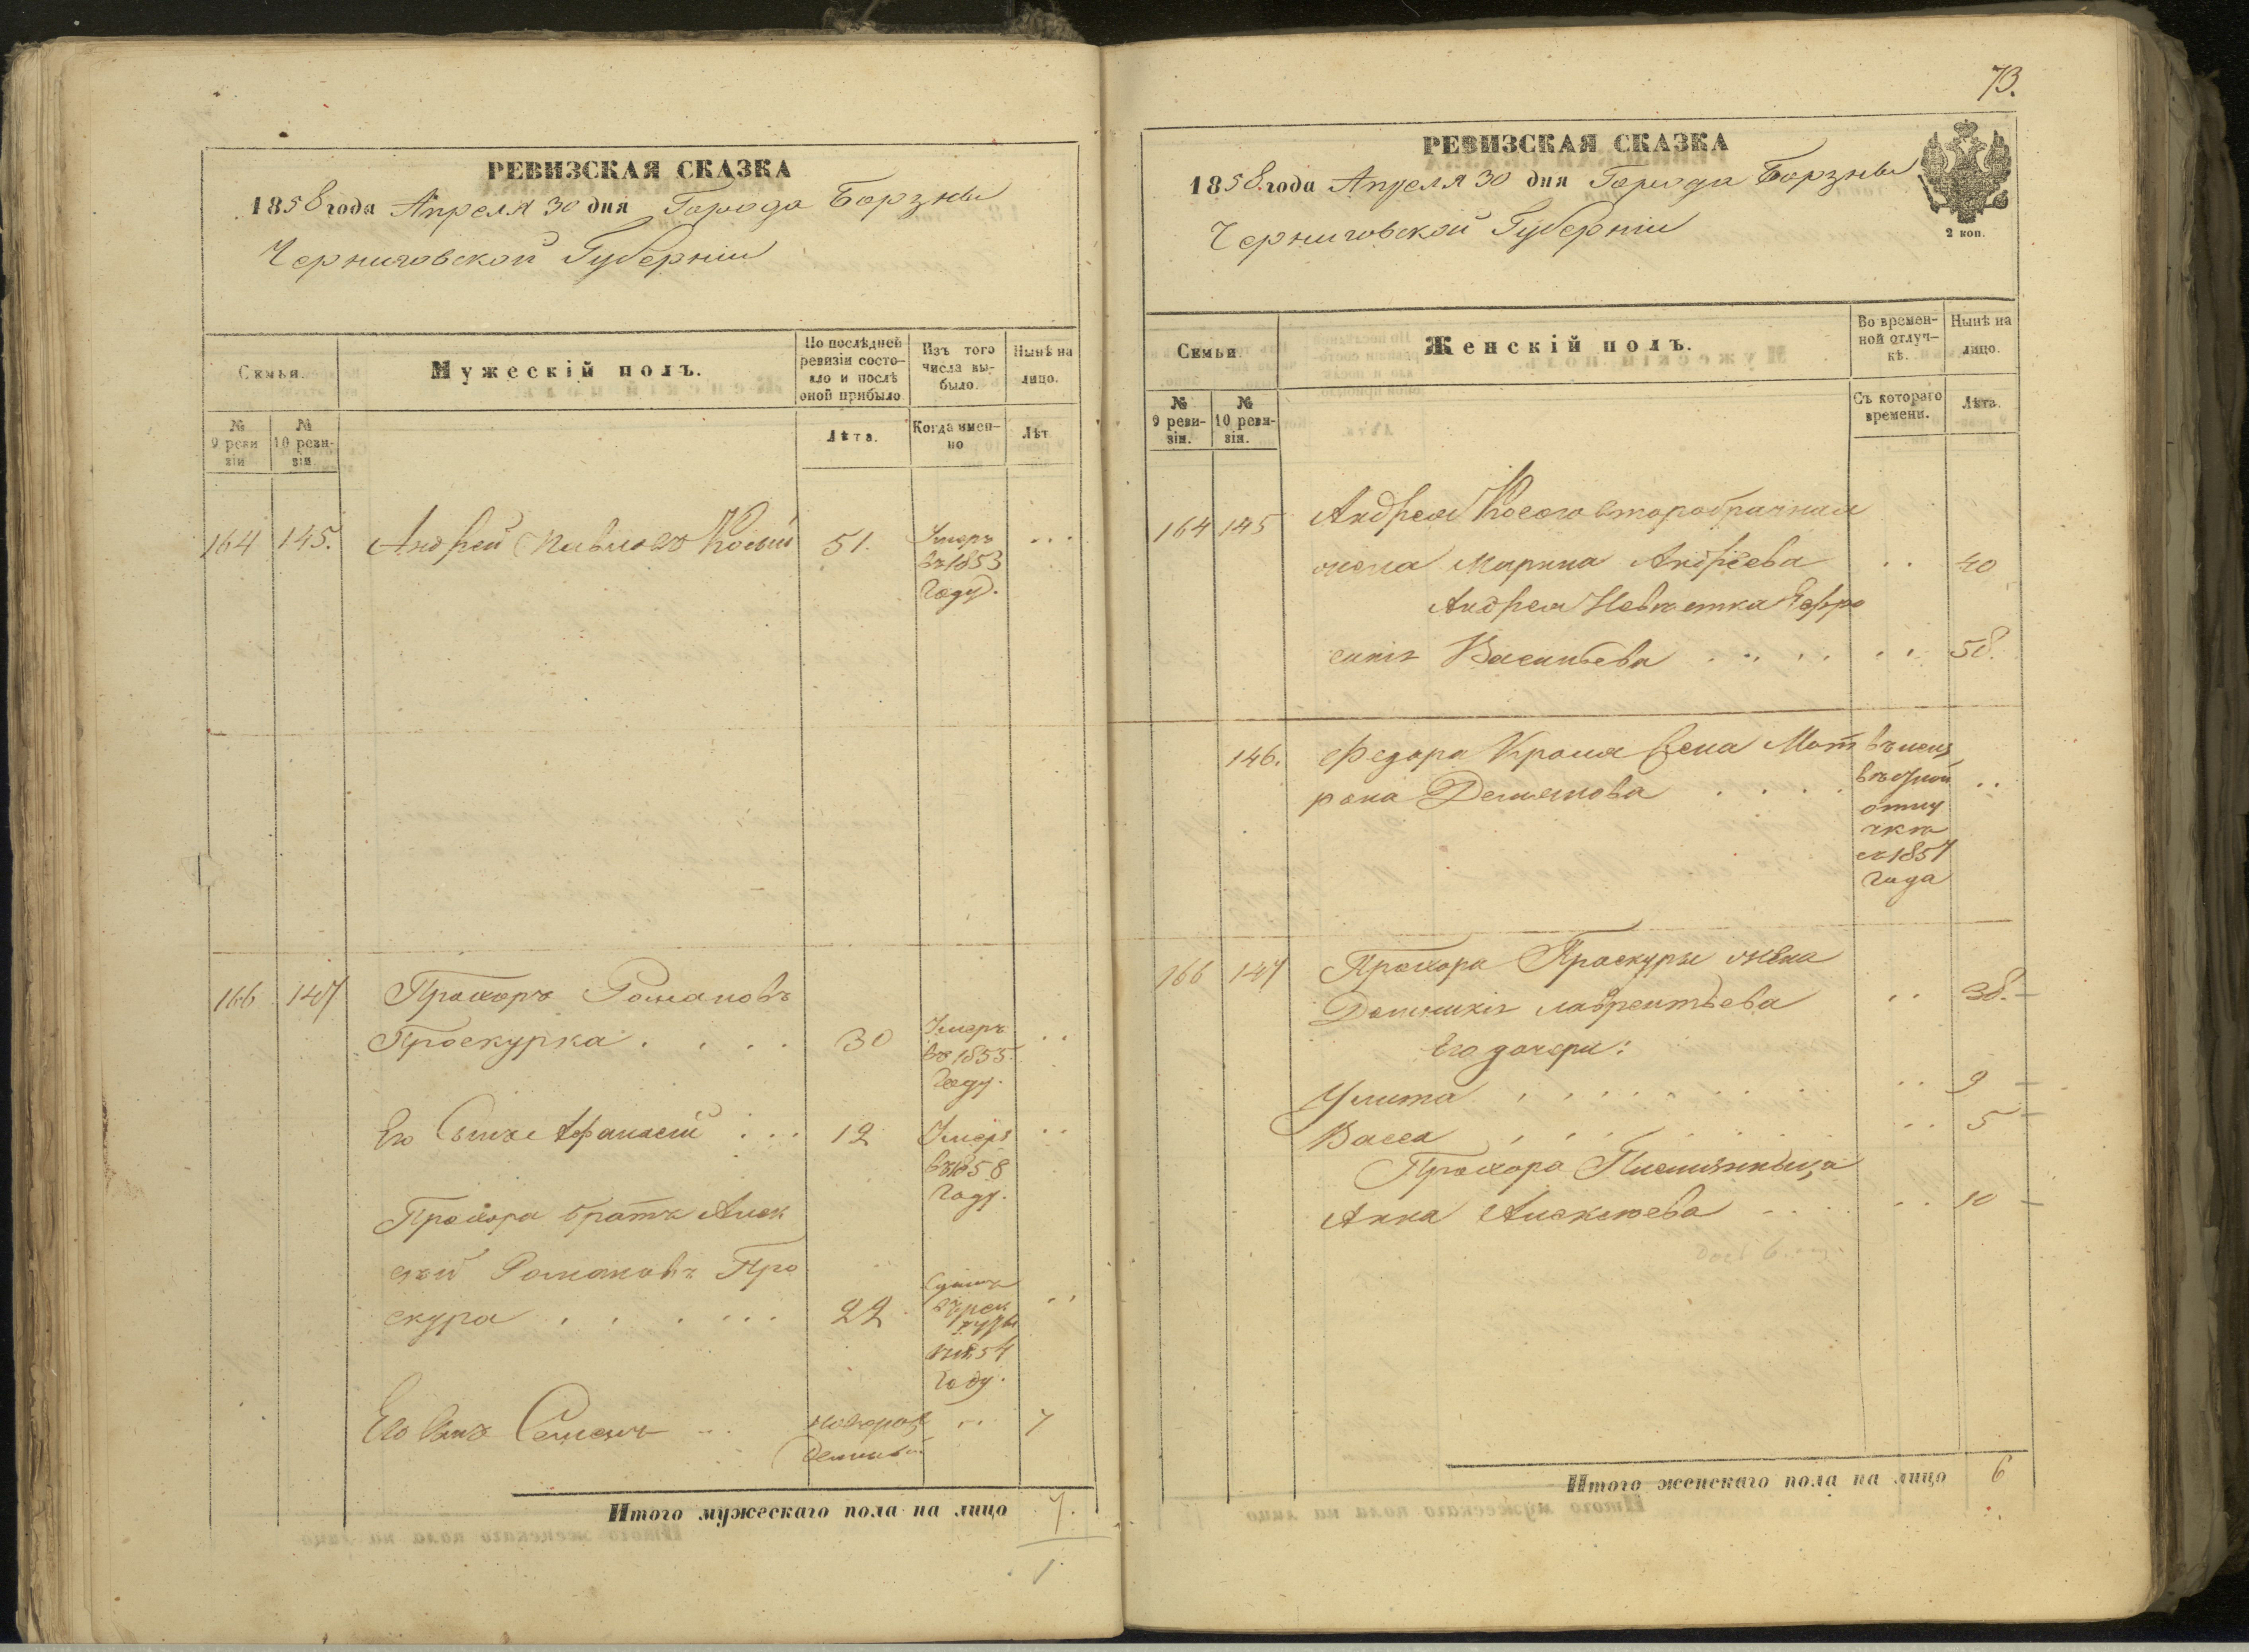 РЕВИЗСКАЯ СКАЗКА
1858 года Апреля 30 дня Города Борзны
Черниговской Губерніи
Семьи.
Мужескій полъ.
По послѣдней ревизіи состояло и послѣ оной прибыло
Изъ того числа выбыло.
Нынѣ на лицо.
№ 9 ревизіи
№ 10 ревизіи
Лѣта.
Когда именно
Лѣт
164 145. Андрей Павловъ Косый 51. Умеръ ...
въ 1853
году.
166 147 Прохоръ Романовъ
Проскурка . . . . 30 Умеръ ..
въ 1855.
году.
Его Сынъ Афанасій . . . 12 Умеръ ..
въ 1858
году.
Прохора братъ Алек
сѣй Романовъ Про
скура . . . . . . 22
въ рек
руты
въ 1854
году.
Его сынъ Семенъ .. новорож .. 7
денный
Итого мужескаго пола на лицо
1
73.
РЕВИЗСКАЯ СКАЗКА
1858 года Апреля 30 дня Города Борзны
Черниговской Губерніи
2 коп.
Семьи.
Женскій полъ.
Во временной отлучкѣ.
Нынѣ на лицо.
№ 9 ревизіи.
№ 10 ревизіи.
Съ котораго времени.
Лѣта.
164 145 Андрея Косого второбрачная
жена Марина Андреева . . 40
Андрея Невѣстка Ефро
синія Васильева . . . . . . 58.
146. Федора Кроля жена Мат
рона Демянова . . . . ..
отлу
чкѣ
съ 1857
года
166 147 Прохора Проскуры жена
Домникія Лаврентьева .. 38. –
Его дочери:
Улита . . . . . . . . .. 9 –
Васса . . . . . . .. 5 –
Прохора Племянница
Анна Алексѣева . . . .. 10 –
Итого женскаго пола на лицо 6